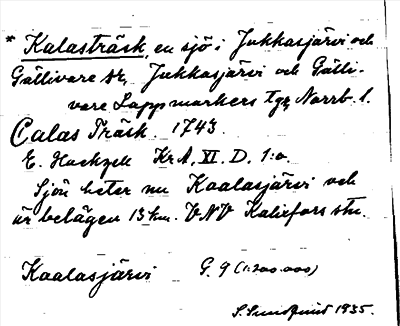 * Kalasträsk, en sjö i Jukkasjärvi och
Gällivare sr, Jukkasjärvi och Gälli-
vare Lappmarkers tgr, Norrb. l.
Calas Träsk. 1743.
E. Hackzell Kr.A. XI. D. 1:a.
Sjön heter nu Kaalasjärvi och
är belägen 13 km. VNV Kalixfors stn.
Kaalasjärvi G. 9 (1:200.000)
S. Sundquist 1935.